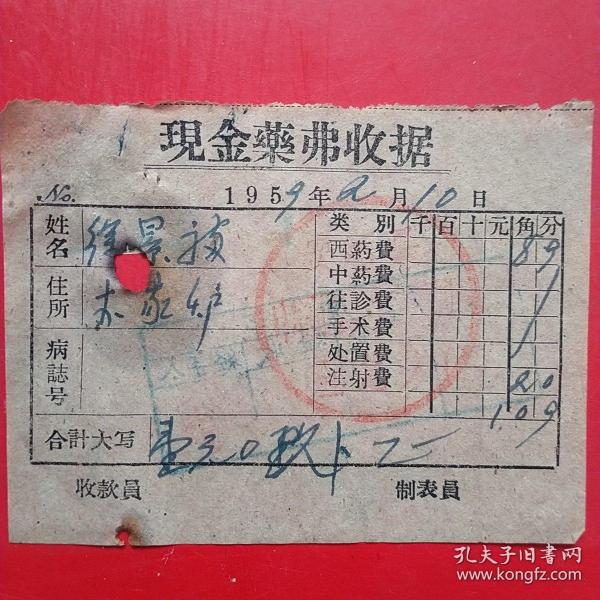 現金藥弗收据
No.
1959年2月10日
姓名 徐景
类別 千百十元角分
西葯費 89
中葯費
住所 木家炉
往診費
手术費
病誌号
处置費
注射費 20
1.09
合計大写 壹元〇玖分
收款員 制表員
孔夫子旧书网
www.kongfz.com